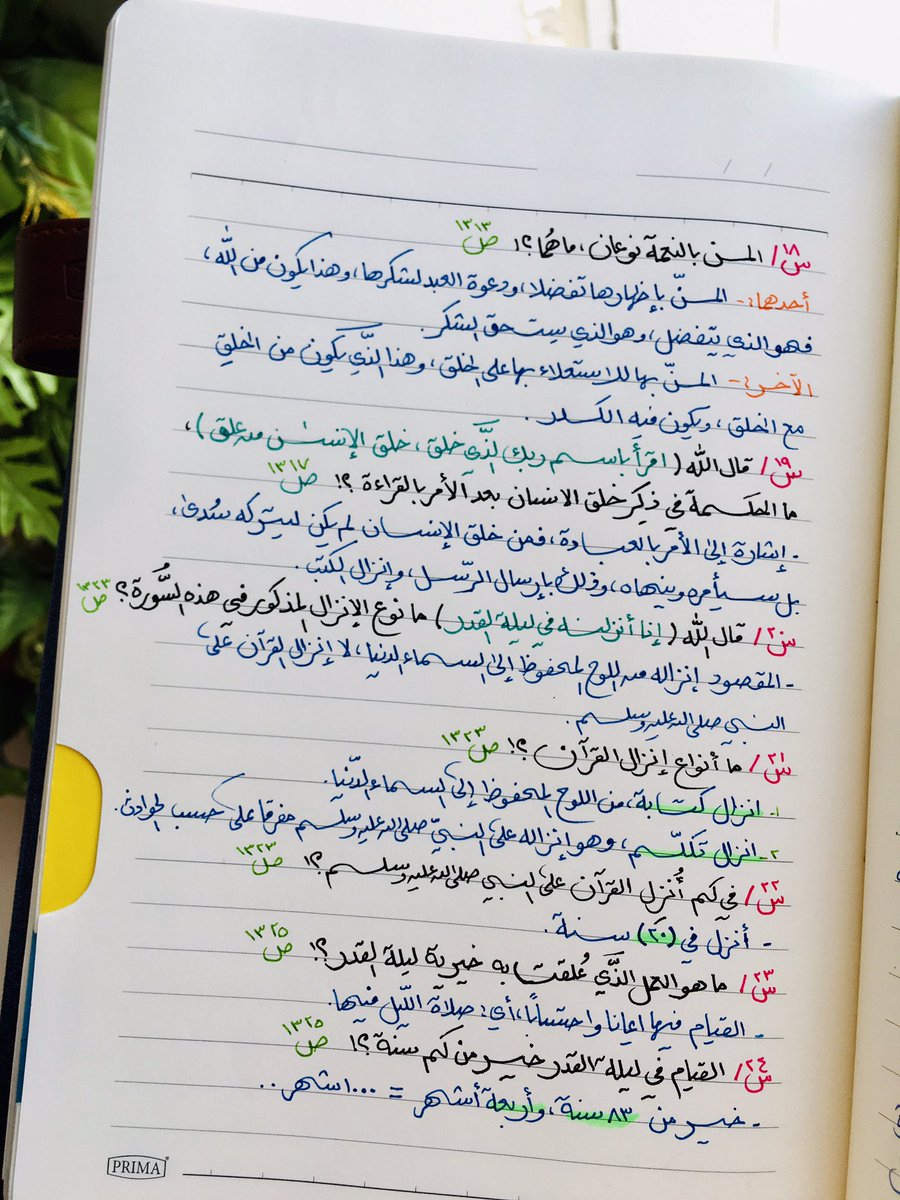 س١٨/ المنّ بالنعمة نوعان، ما هُما؟! ص١٣١٣
أحدهما:- المنّ بإظهارها تفضلا، ودعوة العبد لشكرها، وهذا يكون من اللّٰه،
فهو الذي يتفضل، وهو الذي يستحق الشكر.
الآخر:- المنّ بها للاستعلاء بها على الخلق، وهذا الذَّي يكون من الخلق
مع الخلق، ويكون فيه الكدر.
س١٩/ قال اللّٰه (اقرأ باسم ربك الذَّي خلق، خلق الإنسٰن من علق)،
ما الحكمة في ذِكر خلق الانسان بعد الأمر بالقراءة؟! ص١٣١٧
- إشارة إلى الأمر بالعبادة، فمن خلق الإنسان لم يكن ليتركه سُدىً،
بل سيأمره وينهاه، وذلك بإرسال الرّسل، وإنزال الكتب.
س٢٠/ قال اللّٰه (إنا أنزلنه في ليلة القدر) ما نوع الإنزال المذكور في هذه السُّورة؟! ص١٣٢٣
- المقصود إنزاله من اللوح المحفوظ إلى السماء الدنيا، لا إنزال القرآن على
النبي صلى الله عليه وسلم.
س٢١/ ما أنواع إنزال القرآن؟! ص١٣٢٣
١- انزال كتابة، من اللوح المحفوظ إلى السماء الدّنيا.
٢- انزال تكلّم، وهو إنزاله على النبيّ صلى الله عليه وسلم مفرقا على حسب الحوادث.
س٢٢/ في كم أُنزل القرآن على النبي صلى الله عليه وسلم؟! ص١٣٢٣
- أنزل في (٢٠) سنة.
س٢٣/ ما هو العمل الذَّي عُلقت به خيرية ليلة القدر؟! ص١٣٢٥
- القيام فيها إيمانا واحتسابًا، أي: صلاة اللّيل فيها.
س٢٤/ القيام في ليلة القدر خير من كم سنة؟! ص١٣٢٥
- خير من ٨٣ سنة، وأربعة أشهر = ١٠٠٠ شهر..
PRIMA